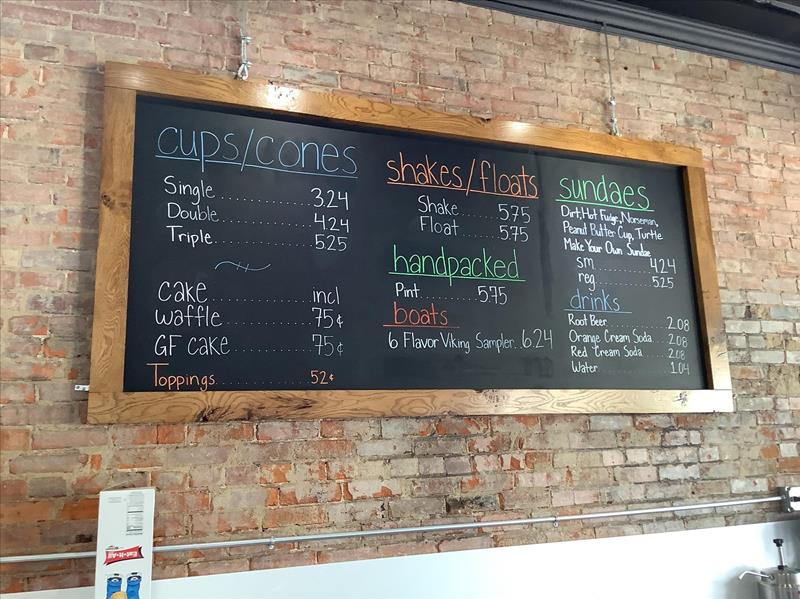 cups/cones
Single 3.24
Double 4.24
Triple 5.25
cake incl
waffle 75¢
GF cake 75¢
Toppings 52¢
shakes/floats
Shake 5.75
Float 5.75
handpacked
Pint 5.75
boats
6 Flavor Viking Sampler 6.24
sundaes
Dirt, Hot Fudge, Norseman,
Peanut Butter Cup, Turtle
Make Your Own Sundae
sm 4.24
reg 5.25
drinks
Root Beer 2.08
Orange Cream Soda 2.08
Red Cream Soda 2.08
Water 1.04
Eat-It-All